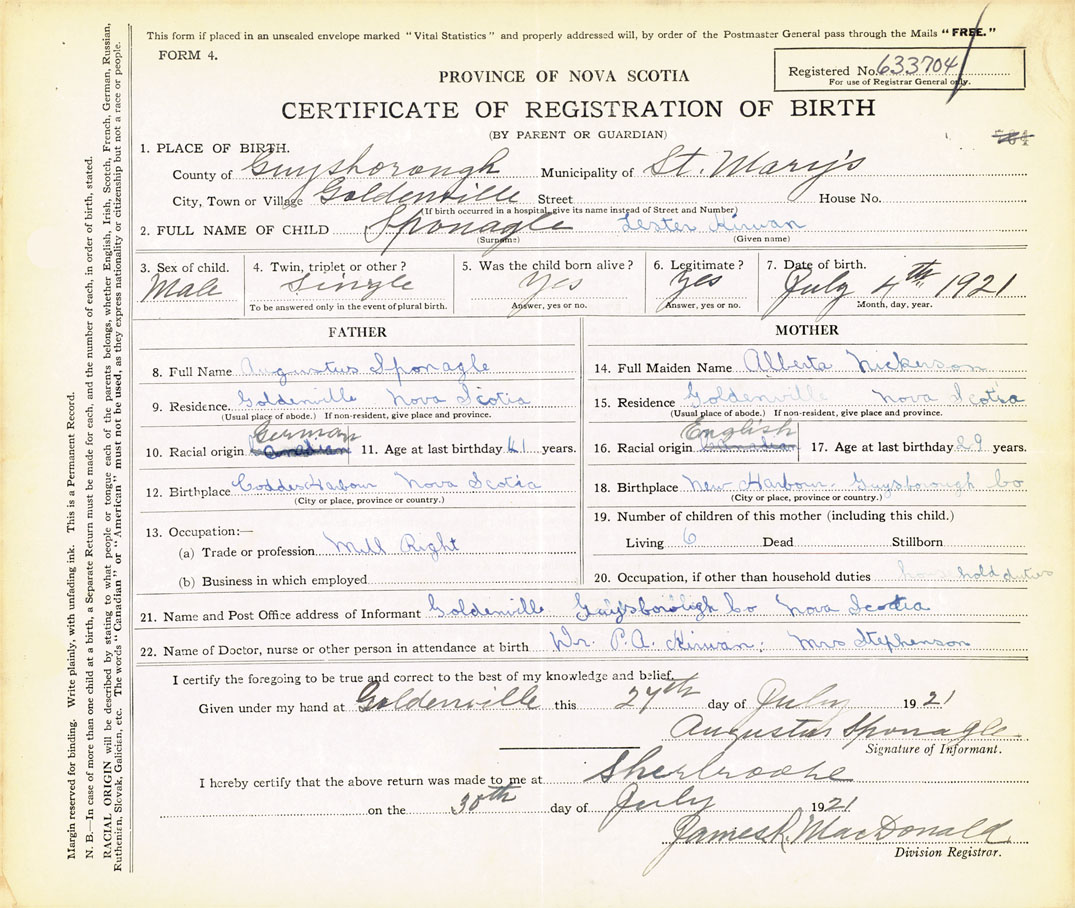 This form if placed in an unsealed envelope marked "Vital Statistics" and properly addressed will, by order of the Postmaster General pass through the Mails "FREE."
FORM 4.
Registered No. 633704
For use of Registrar General only.
PROVINCE OF NOVA SCOTIA
CERTIFICATE OF REGISTRATION OF BIRTH
(BY PARENT OR GUARDIAN)
1. PLACE OF BIRTH.
County of Guysborough Municipality of St. Mary's
City, Town or Village Goldenville Street House No.
(If birth occurred in a hospital, give its name instead of Street and Number)
2. FULL NAME OF CHILD Sponagle Lester Kirwan
(Surname) (Given name)
3. Sex of child. 4. Twin, triplet or other? 5. Was the child born alive? 6. Legitimate? 7. Date of birth.
Male Single Yes Yes July 4th 1921
To be answered only in the event of plural birth. Answer, yes or no. Answer, yes or no. Month, day, year.
FATHER
8. Full Name Augustus Sponagle
9. Residence. Goldenville Nova Scotia
(Usual place of abode.) If non-resident, give place and province.
German
10. Racial origin 11. Age at last birthday 41 years.
12. Birthplace Coddes Harbour Nova Scotia
(City or place, province or country.)
13. Occupation:—
(a) Trade or profession Mill Right
(b) Business in which employed
MOTHER
14. Full Maiden Name Alberta Nickerson
15. Residence Goldenville Nova Scotia
(Usual place of abode.) If non-resident, give place and province.
English
16. Racial origin Canadian 17. Age at last birthday 29 years.
18. Birthplace New Harbour. Guysborough Co
(City or place, province or country.)
19. Number of children of this mother (including this child.)
Living 6 Dead Stillborn
20. Occupation, if other than household duties house hold duties
21. Name and Post Office address of Informant Goldenville Guysborough Co Nova Scotia
22. Name of Doctor, nurse or other person in attendance at birth Dr. P.A. Kirwan. Mrs Stephenson
I certify the foregoing to be true and correct to the best of my knowledge and belief.
Given under my hand at Goldenville this 27th day of July 1921
Augustus Sponagle
Signature of Informant.
I hereby certify that the above return was made to me at Sherbrooke
on the 30th day of July 1921
James R. MacDonald
Division Registrar.
Margin reserved for binding. Write plainly, with unfading ink. This is a Permanent Record.
N. B.—In case of more than one child at a birth, a Separate Return must be made for each, and the number of each, in order of birth, stated.
RACIAL ORIGIN will be described by stating to what people or tongue each of the parents belongs, whether English, Irish, Scotch, French, German, Russian,
Ruthenian, Slovak, Galician, etc. The words "Canadian" or "American" must not be used, as they express nationality or citizenship but not a race or people.